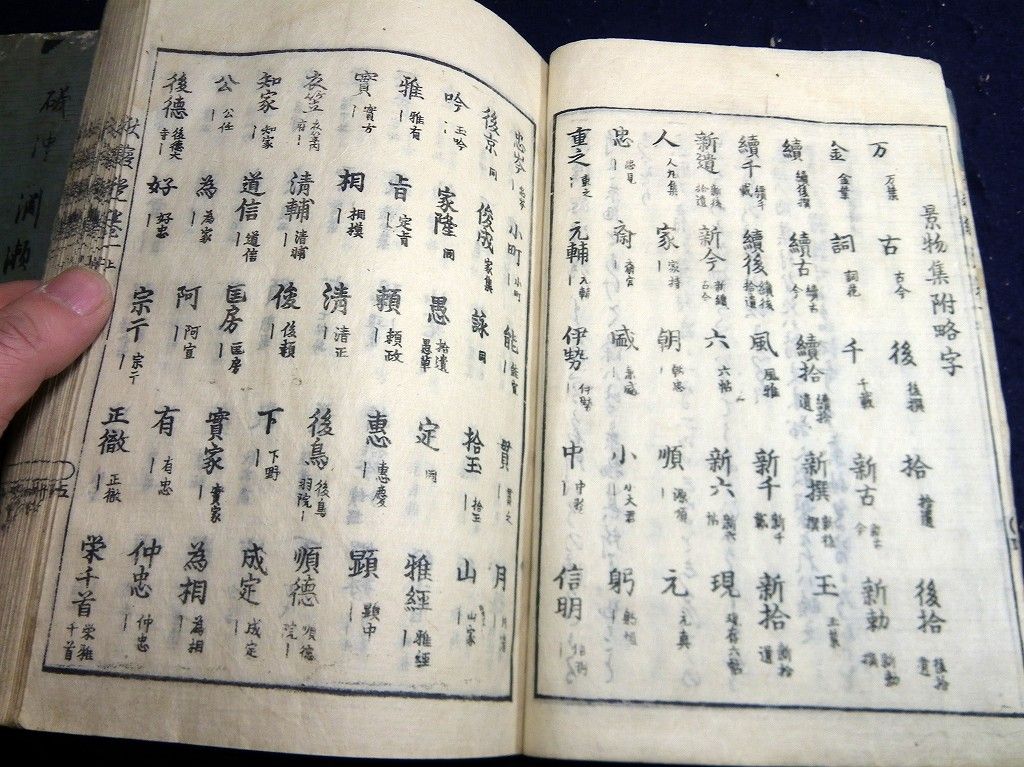 景物集附略字
万 万葉 古 古今 後 後撰 拾 拾遺 後拾 後拾遺
金 金葉 詞 詞花 千 千載 新古 新古今 新勅 新勅撰
續 續後撰 續古 續古今 續拾 續拾遺 新撰 玉 玉葉
續千 續千載 續後 續後拾遺 風 風雅 新千 新千載 新拾 新拾遺
新遺 新後拾遺 新今 新續古今 六 六帖 新六 新六帖 現 現存六帖
人 人丸集 家 家持 朝 順 源順 元 元真
忠 忠見 斎 斎宮 小 小大君 躬 躬恒
重之 重之 元輔 元輔 伊勢 伊勢 中 中務 信明 信明
忠岑 忠岑 小町 小町 能 能宣 貫 貫之 月 月清
後京 同 俊成 家集 詠 同 拾玉 拾玉 山 山家
吟 玉吟 家隆 同 愚 拾遺愚草 定 同 雅經 雅經
雅 雅有 㫖 定㫖 頼 頼政 惠 惠慶 顕 顕中
實 實方 相 相模 清 清正 後鳥 後鳥羽院 順德 順德院
衣笠 清輔 清輔 俊 俊頼 下 下野 成定 成定
知家 知家 道信 道信 匡房 匡房 實家 實家 為相 為相
公 公任 為 為家 阿 有 有忠 仲忠 仲忠
後德 後德大寺 好 好忠 宗于 宗于 正徹 正徹 栄千首 栄雅千首